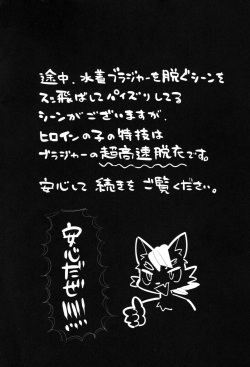 途中、水着ブラジャーを脱ぐシーンを
スッ飛ばしてパイズリしてる
シーンがございますが、
ヒロインの子の特技は
ブラジャーの超高速脱衣です。
安心して続きをご覧ください。
安心だぜ!!!!